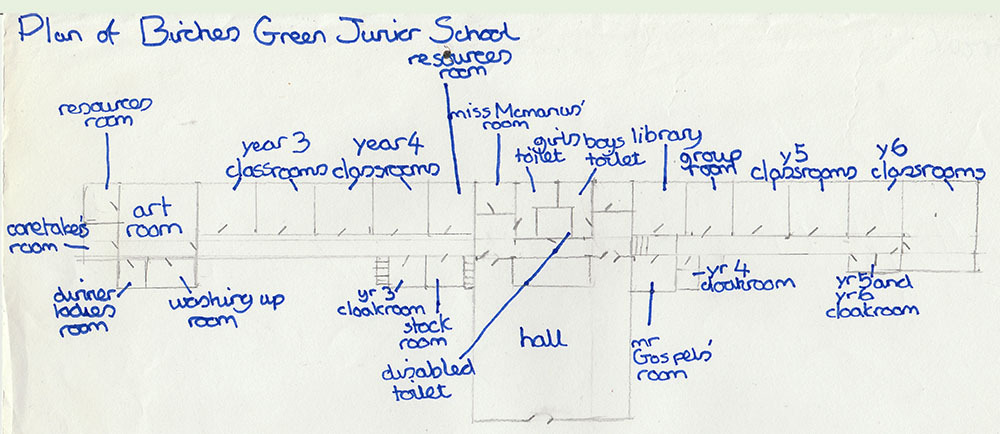 Plan of Birches Green Junior School
resources
room
resources
room
miss Mcmanus'
room
girls
toilet
boys
toilet
library
group
room
year 3
classrooms
year 4
classrooms
y5
classrooms
y6
classrooms
art
room
caretake's
room
dinner
ladies
room
washing up
room
yr 3
cloakroom
stock
room
disabled
toilet
hall
mr
Gospels'
room
yr 4
cloakroom
yr 5 and
yr 6
cloakroom